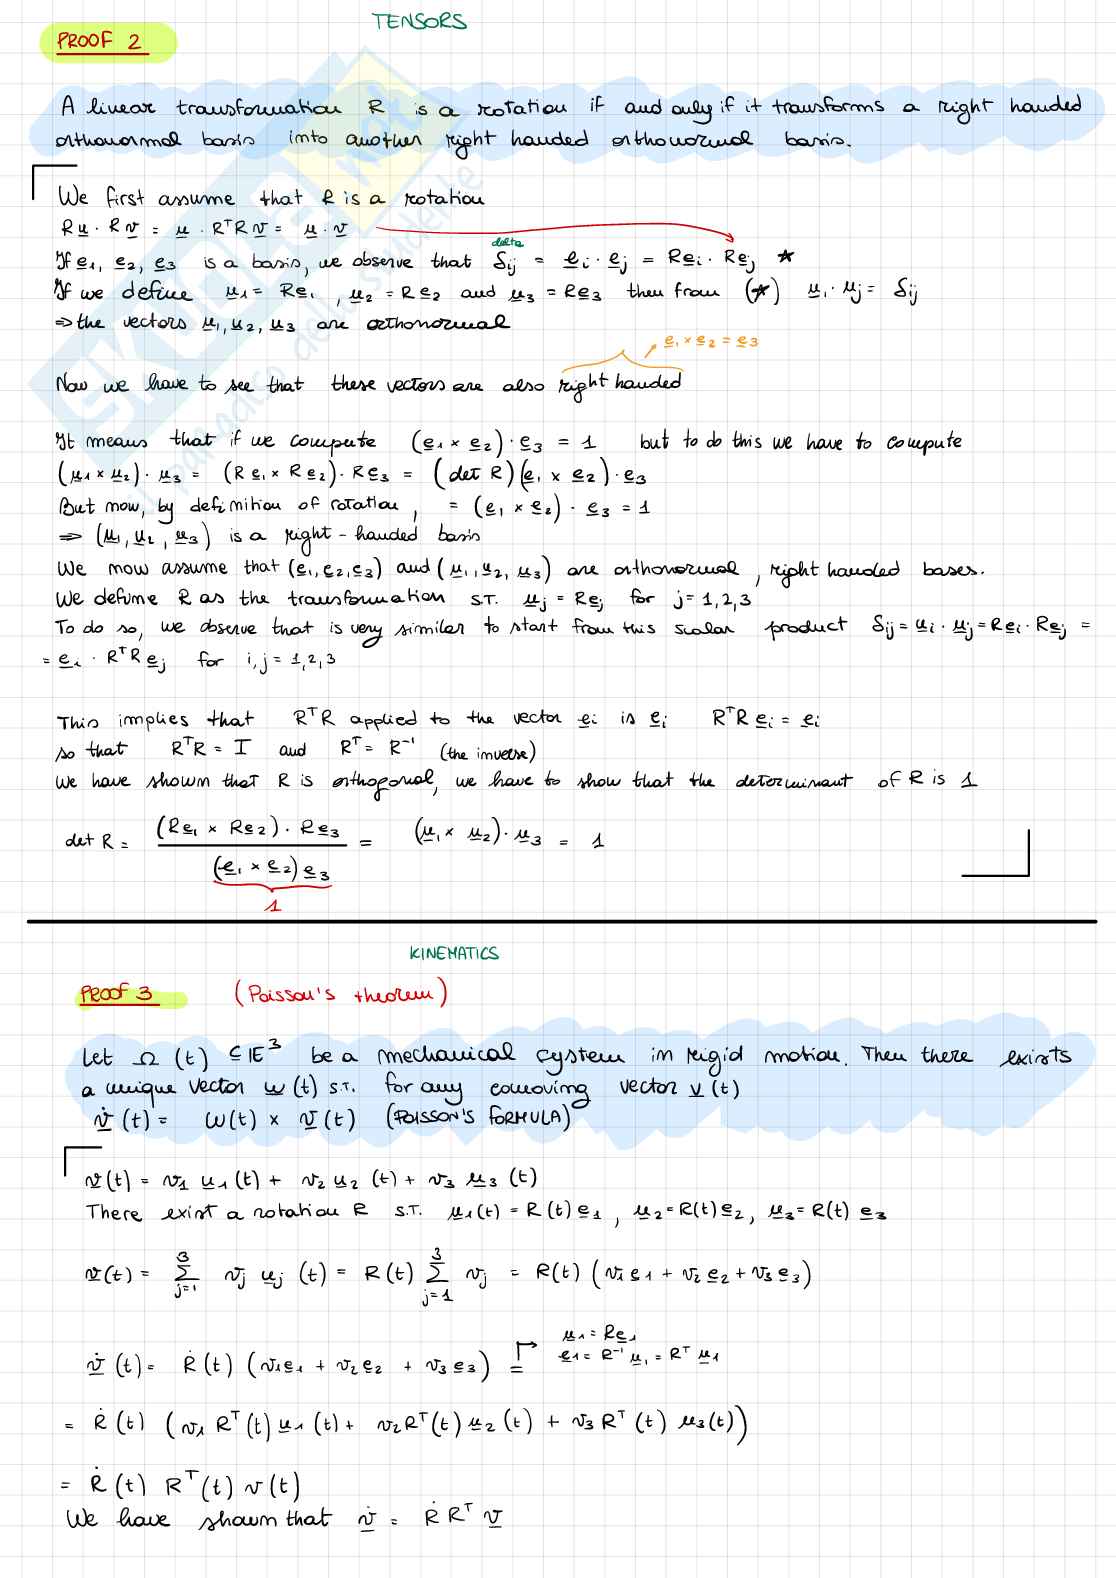 TENSORS
PROOF 2
A linear transformation R is a rotation if and only if it transforms a right handed
orthonormal basis into another right handed orthonormal basis.
We first assume that R is a rotation
Ru̲ · Rv̲ = u̲ · RᵀRv̲ = u̲ · v̲
delta
If e̲₁, e̲₂, e̲₃ is a basis, we observe that δij = e̲i · e̲j = Re̲i · Re̲j ★
If we define u̲₁ = Re̲₁, u̲₂ = Re̲₂ and u̲₃ = Re̲₃ then from (★) u̲i · u̲j = δij
⇒ the vectors u̲₁, u̲₂, u̲₃ are orthonormal
e̲₁ × e̲₂ = e̲₃
Now we have to see that these vectors are also right handed
It means that if we compute (e̲₁ × e̲₂) · e̲₃ = 1 but to do this we have to compute
(u̲₁ × u̲₂) · u̲₃ = (Re̲₁ × Re̲₂) · Re̲₃ = (det R)(e̲₁ × e̲₂) · e̲₃
But now, by definition of rotation, = (e̲₁ × e̲₂) · e̲₃ = 1
⇒ (u̲₁, u̲₂, u̲₃) is a right-handed basis
We now assume that (e̲₁, e̲₂, e̲₃) and (u̲₁, u̲₂, u̲₃) are orthonormal, right handed bases.
We define R as the transformation s.t. u̲j = Re̲j for j = 1,2,3
To do so, we observe that is very similar to start from this scalar product δij = u̲i · u̲j = Re̲i · Re̲j =
= e̲i · RᵀRe̲j for i,j = 1,2,3
This implies that RᵀR applied to the vector e̲i is e̲i RᵀR e̲i = e̲i
so that RᵀR = I and Rᵀ = R⁻¹ (the inverse)
We have shown that R is orthogonal, we have to show that the determinant of R is 1
det R = (Re̲₁ × Re̲₂) · Re̲₃ / (e̲₁ × e̲₂) e̲₃ = (u̲₁ × u̲₂) · u̲₃ = 1
1
KINEMATICS
PROOF 3 (Poisson's theorem)
Let Ω(t) ⊆ IE³ be a mechanical system in rigid motion. Then there exists
a unique vector ω̲(t) s.t. for any comoving vector v̲(t)
v̲̇(t) = ω(t) × v̲(t) (POISSON'S FORMULA)
v̲(t) = v₁ u̲₁(t) + v₂ u̲₂(t) + v₃ u̲₃(t)
There exist a rotation R s.t. u̲₁(t) = R(t) e̲₁, u̲₂ = R(t) e̲₂, u̲₃ = R(t) e̲₃
v̲(t) = Σ³j=1 vj u̲j(t) = R(t) Σ³j=1 vj = R(t) (v₁e̲₁ + v₂e̲₂ + v₃e̲₃)
u̲₁ = Re̲₁
e̲₁ = R⁻¹ u̲₁ = Rᵀ u̲₁
v̲̇(t) = Ṙ(t) (v₁e̲₁ + v₂e̲₂ + v₃e̲₃) =
= Ṙ(t) (v₁ Rᵀ(t) u̲₁(t) + v₂Rᵀ(t) u̲₂(t) + v₃ Rᵀ(t) u̲₃(t))
= Ṙ(t) Rᵀ(t) v(t)
We have shown that v̲̇ = Ṙ Rᵀ v̲